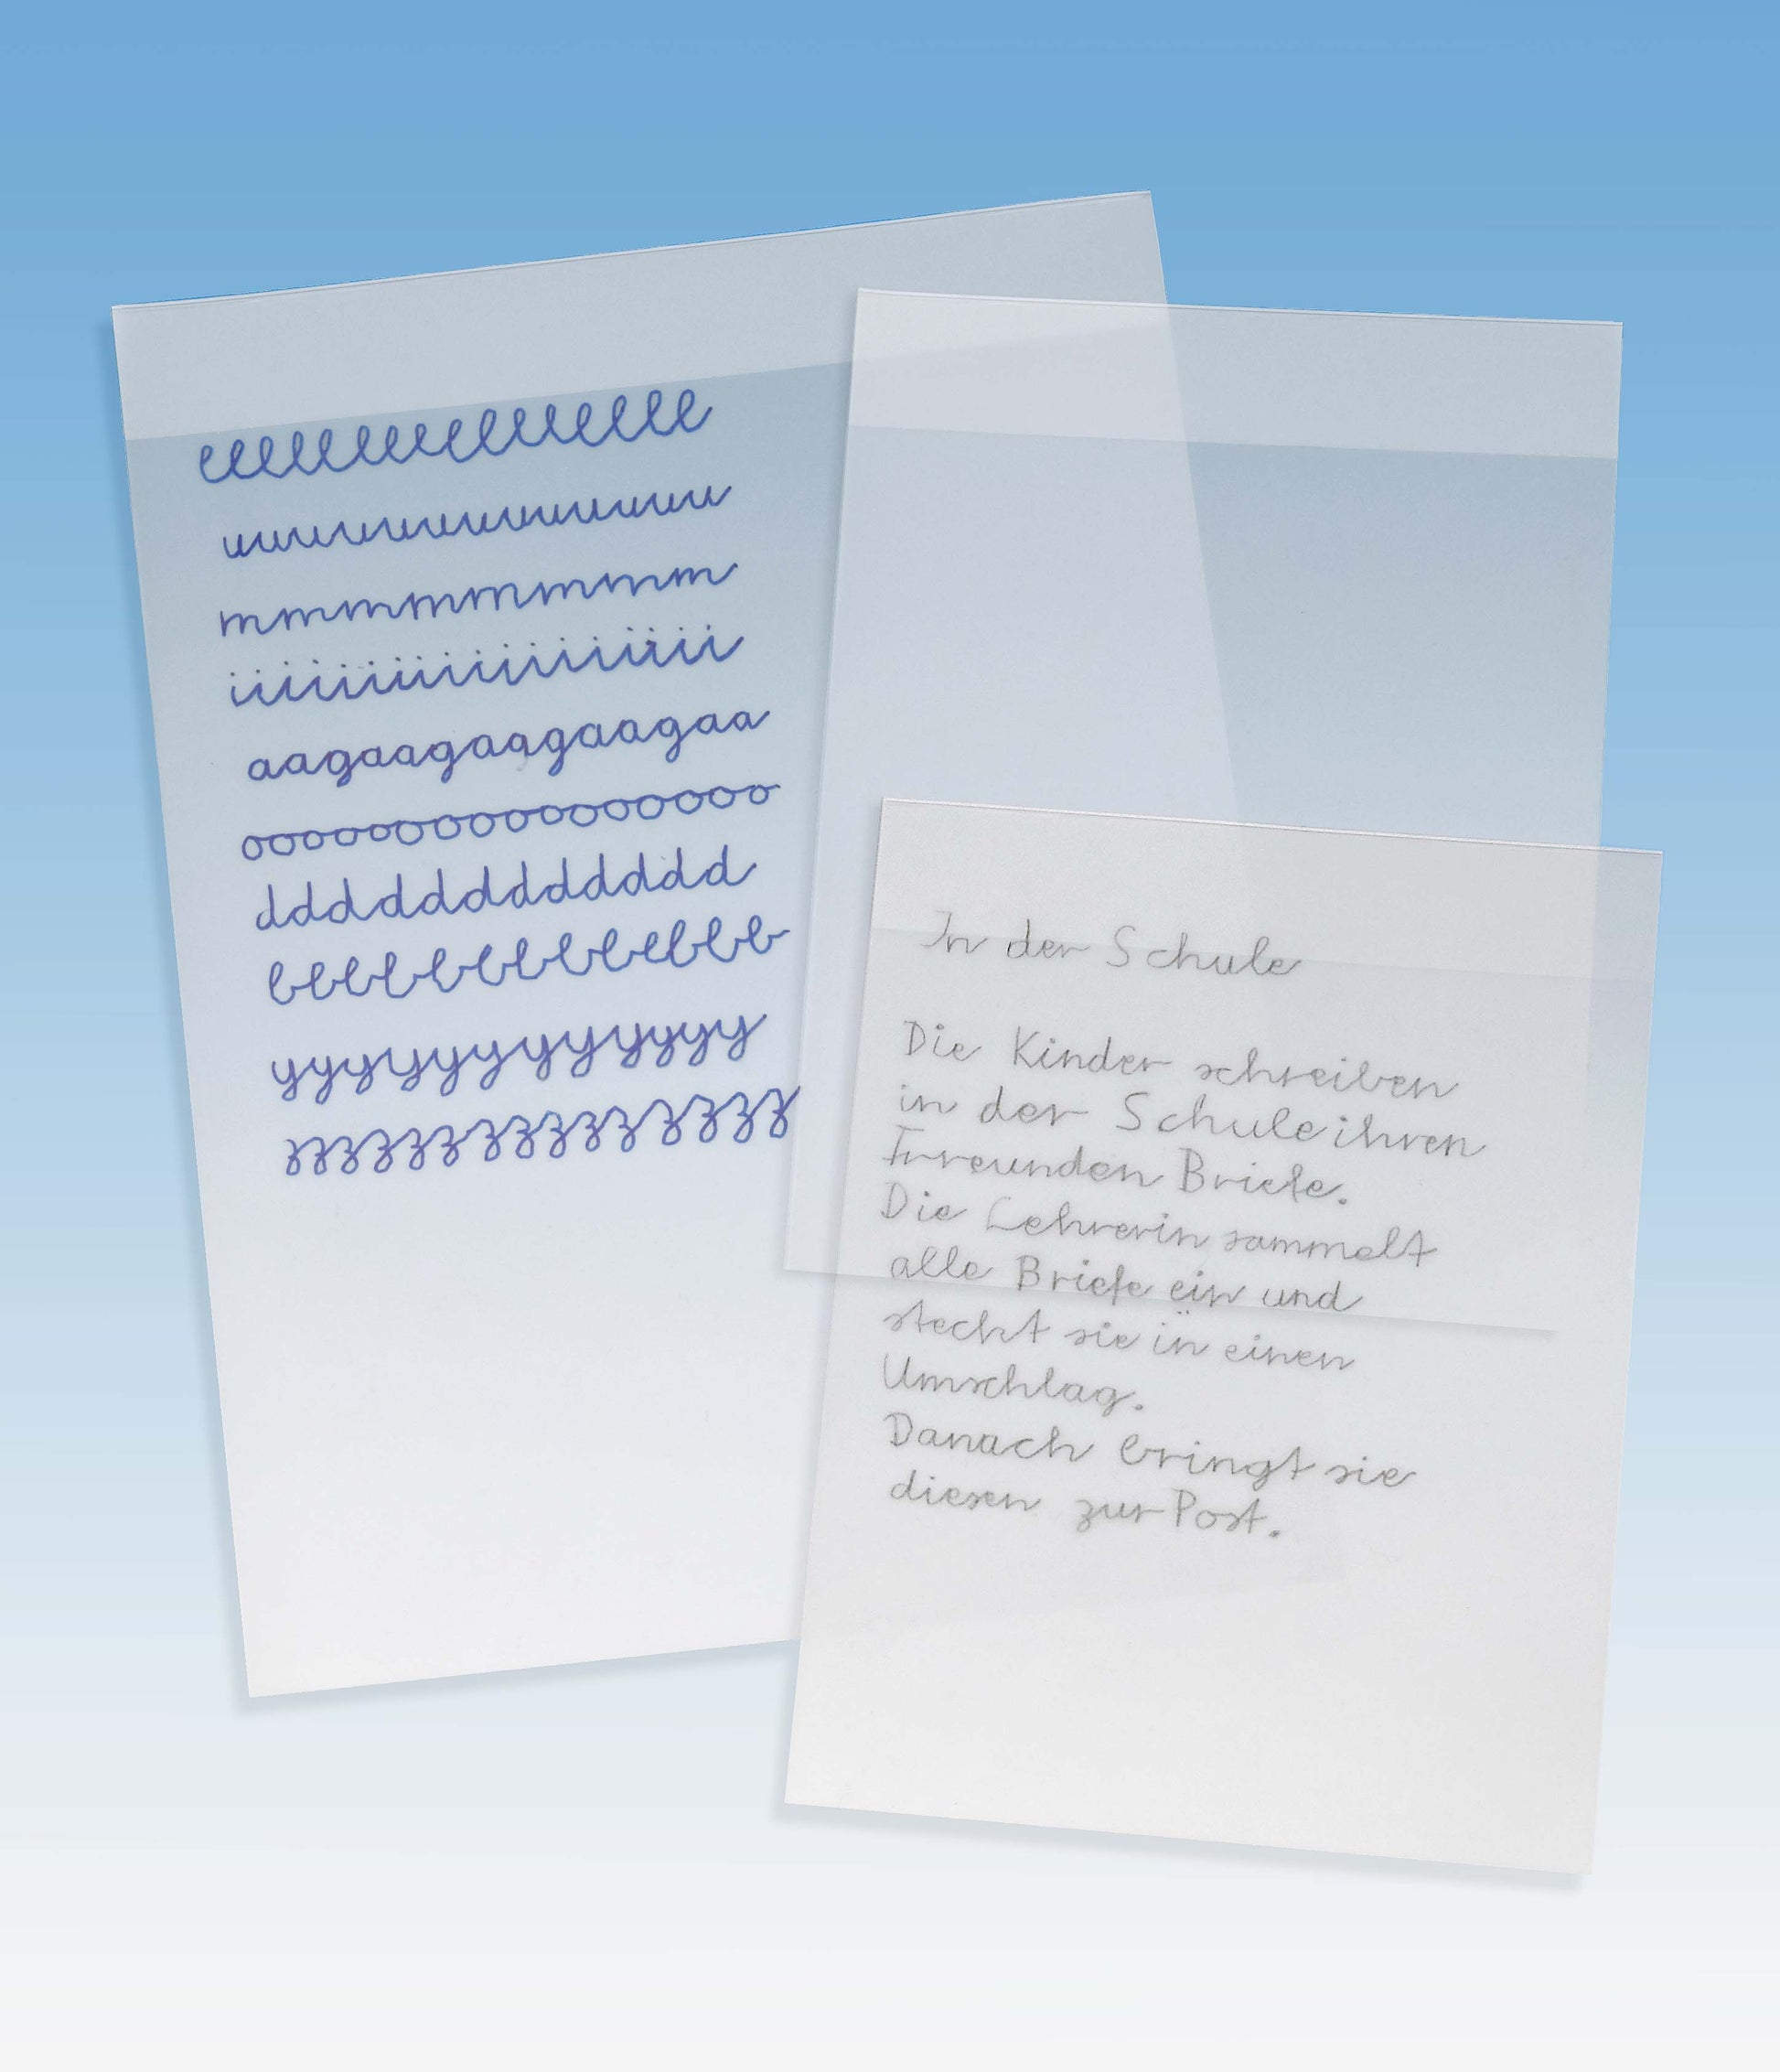 elllllllllllllll
uuuuuuuuuuuuu
mmmmmmmm
iiiiiiiiiiiiiiiiii
aagaagaagaagaa
ooooooooooooooooo
dddddddddddd
bbbbbbbbbbbb
yyyyyyyyyyyyy
zzzzzzzzzzzzzz
In der Schule
Die Kinder schreiben
in der Schule ihren
Freunden Briefe.
Die Lehrerin sammelt
alle Briefe ein und
steckt sie in einen
Umschlag.
Danach bringt sie
diesen zur Post.